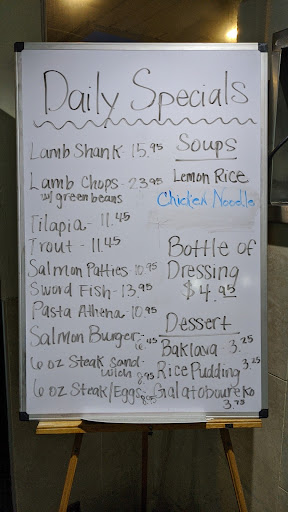 Daily Specials
Lamb Shank - 15.95
Lamb Chops - 23.95
w/ green beans
Tilapia - 11.45
Trout - 11.45
Salmon Patties 10.95
Sword Fish - 13.95
Pasta Athena - 10.95
Salmon Burger -
6 oz Steak Sand-
wich 8.95
6 oz Steak/Eggs -
Soups
Lemon Rice
Chicken Noodle
Bottle of
Dressing
$4.95
Dessert
Baklava - 3.25
Rice Pudding 3.25
Galatoboureko
3.75